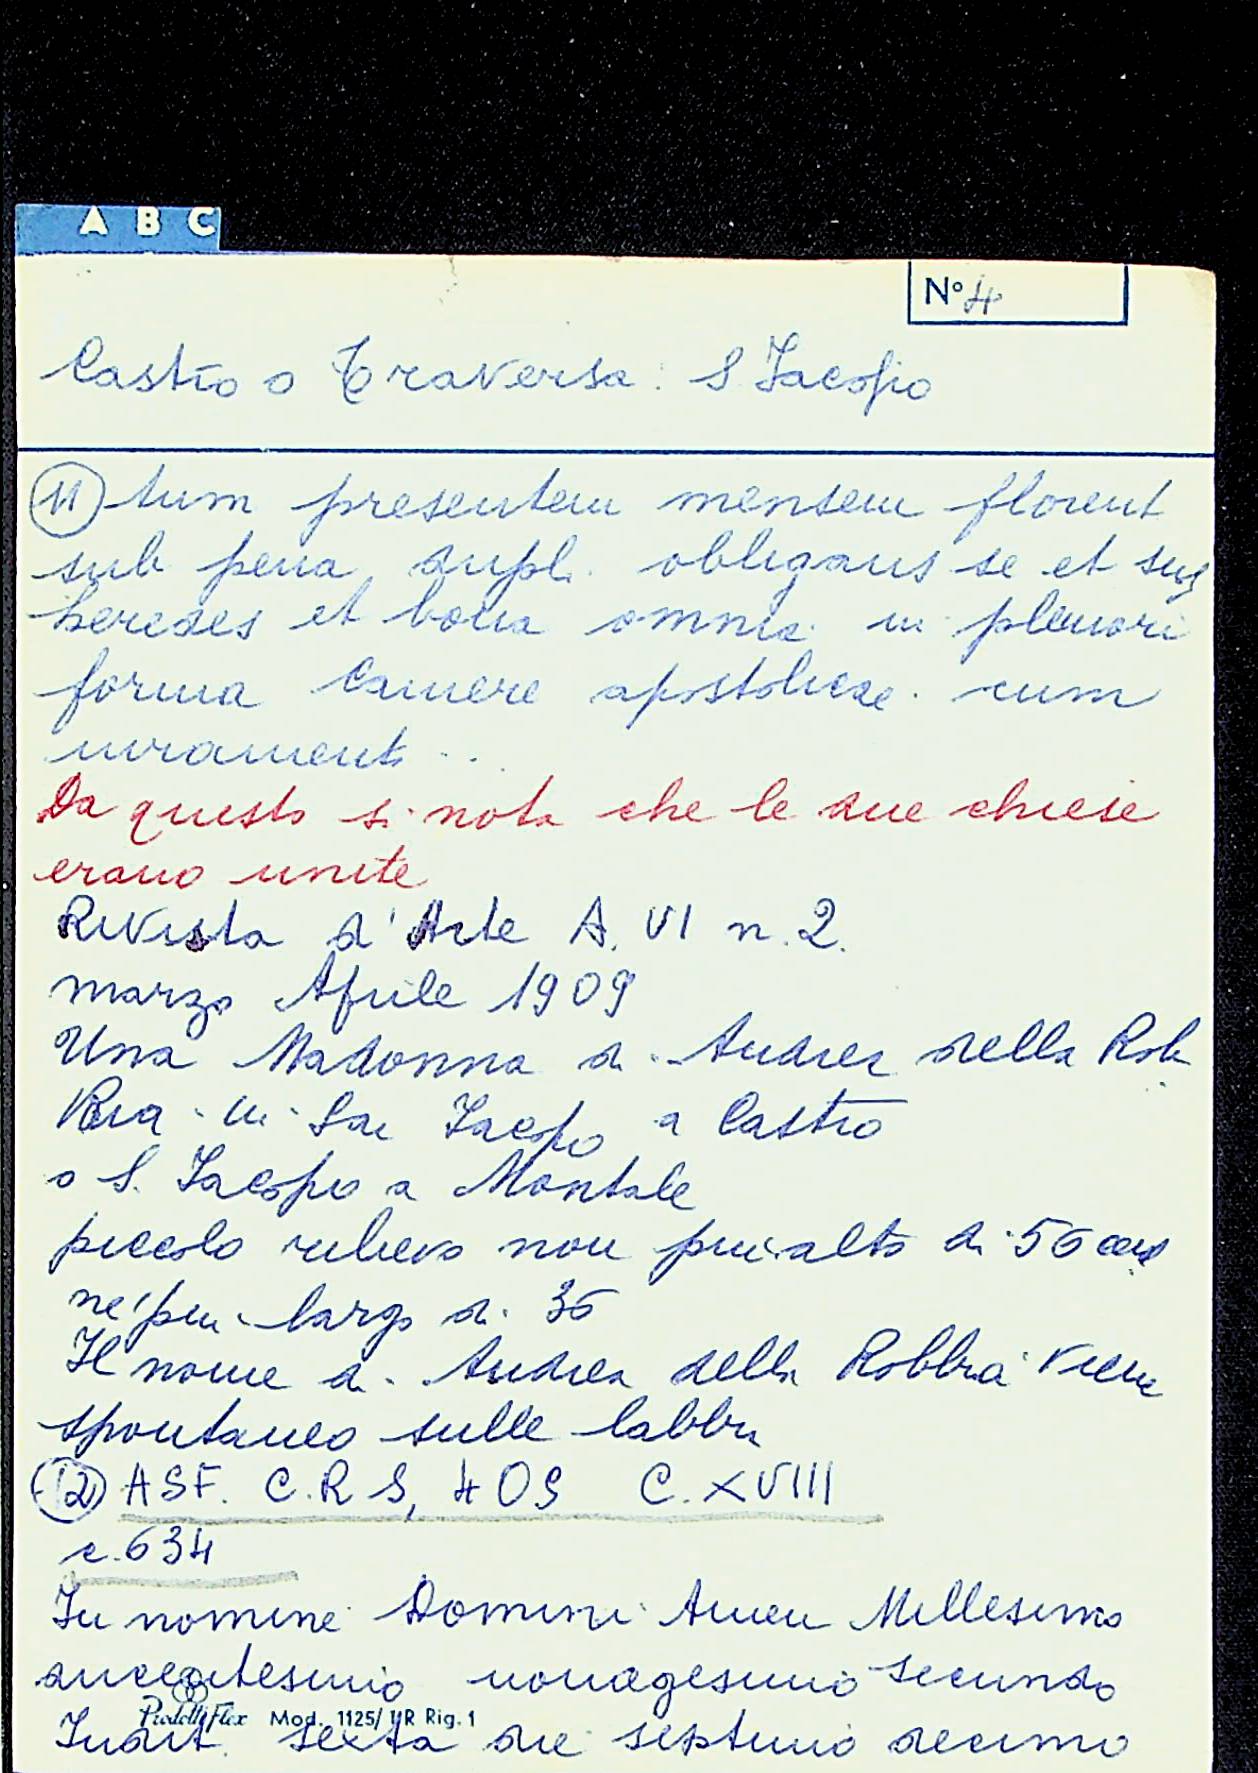 A B C
N° 4
Castro o Traversa: S Jacopo
11 tum presentem mensem florent
sub pena dupl. obligans se et suos
heredes et bona omnia in pleniori
forma Camere apostolicae. cum
iurament...
Da questo si nota che le due chiese
erano unite
Rivista d'Arte A. VI n. 2.
marzo Aprile 1909
Una Madonna di Andrea della Rob
bia in San Jacopo a Castro
o S. Jacopo a Montale
piccolo rilievo non piu alto di 56 cm
nè piu largo di 36
Il nome di Andrea della Robbia viene
spontaneo sulle labbra
12 ASF. C.R.S, 409 C. XVIII
c. 634
In nomine Domini Amen Millesimo
ducentesimo nonagesimo secundo
PrudelliFlex Mod. 1125/UR Rig. 1
Indit. sexta die septimo decimo